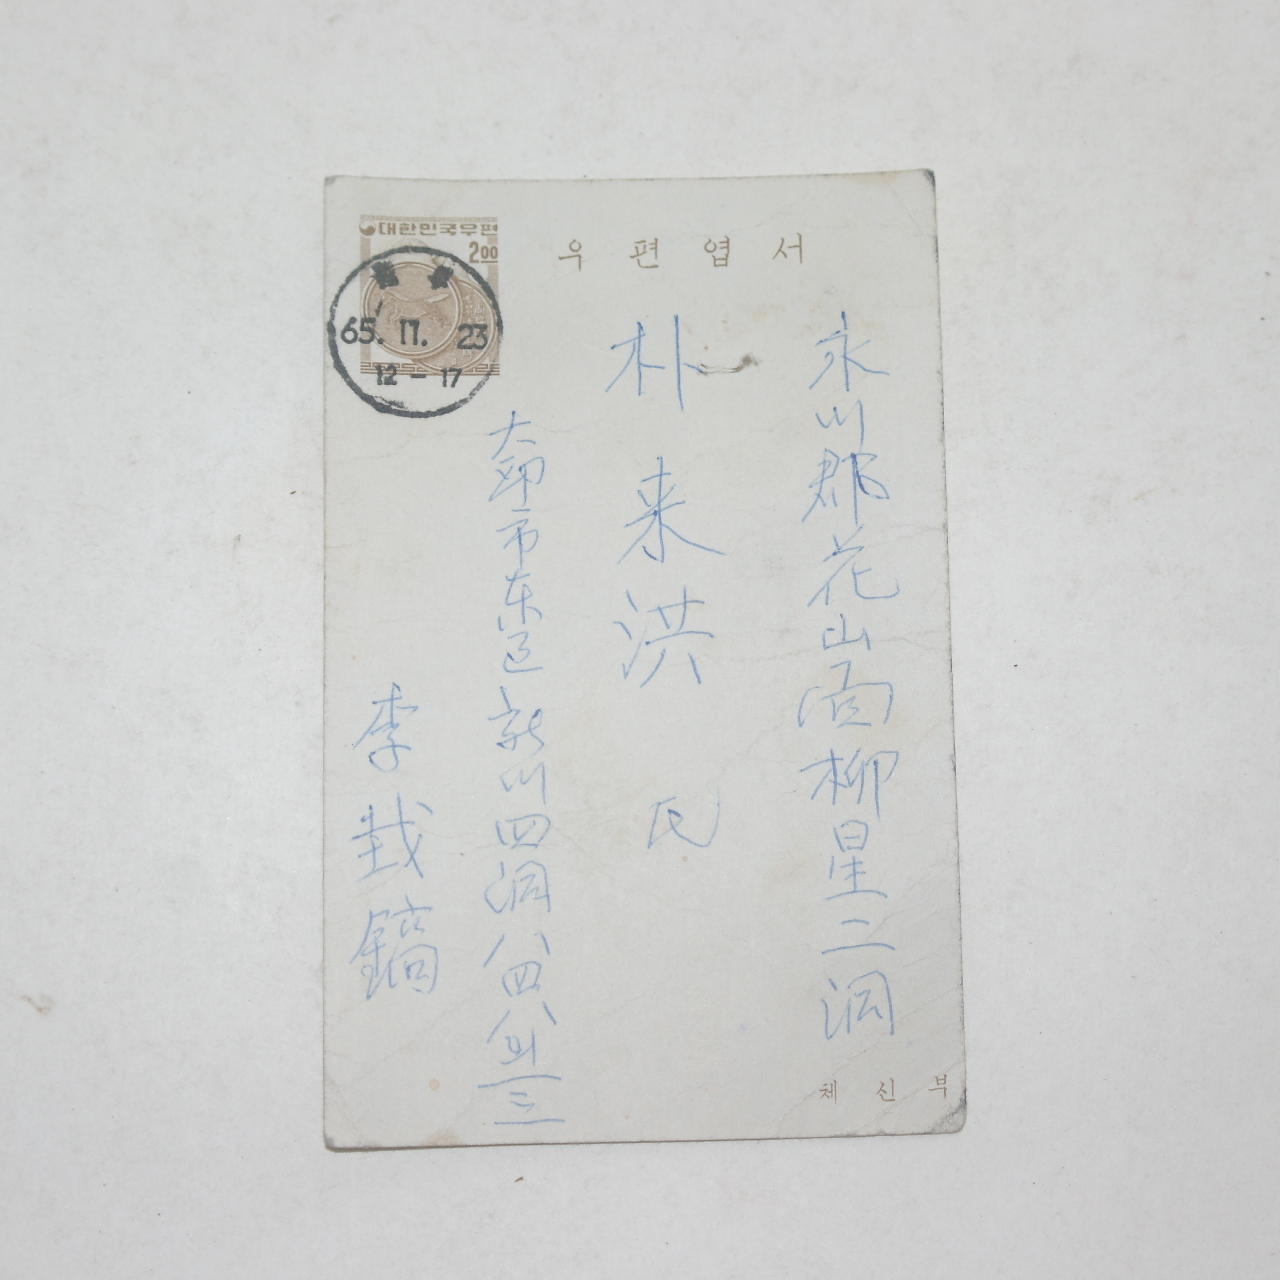 대한민국우편
2.00
우편엽서
65. 11. 23
12-17
永川郡花山面柳星二洞
朴来洪 氏
大邱市东区新川四洞八四八의一三
李栽鎬
체신부